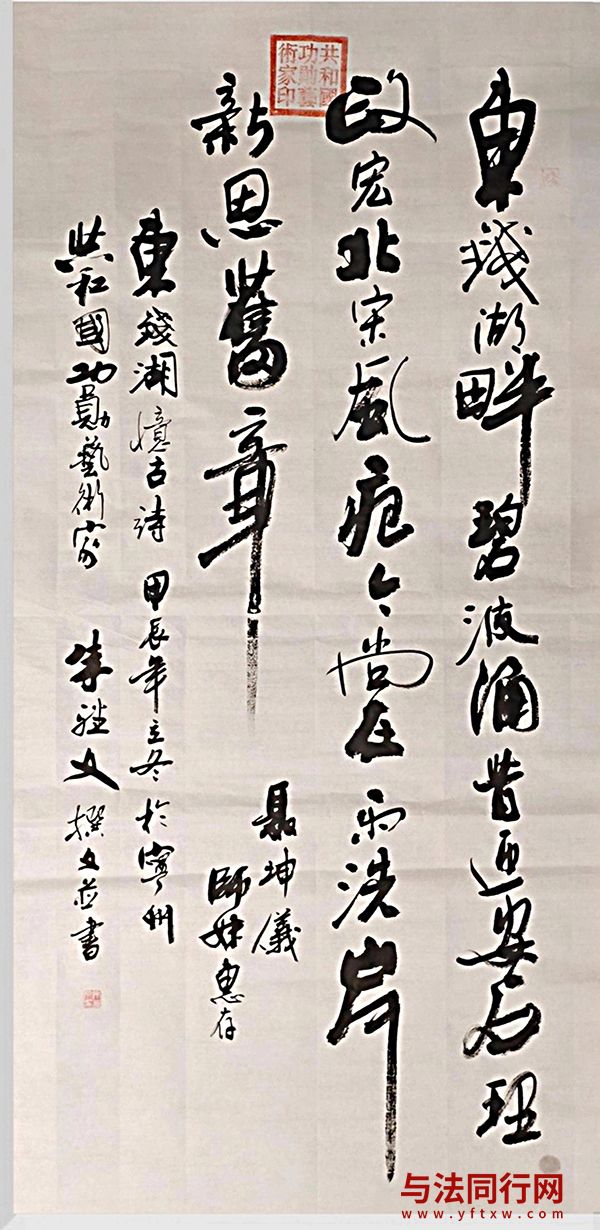 共和國
功勛藝
術家印
東錢湖畔碧波涌昔迎安石理
政宏北宋風痕今尚在雨洗岸
新思舊章
聶坤儀
師妹惠存
東錢湖憶古詩 甲辰年立冬於寧州
共和國功勳藝術家 朱 文 撰文並書
与法同行网
www.yftxw.com